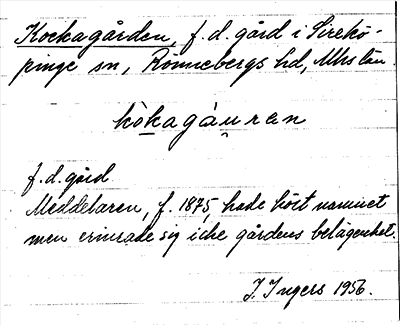 Kockagården, f.d. gård i Sirekö-
pinge sn, Rönnebergs hd, Mhs län.
kòkagáu̯ran
f.d. gård
Meddelaren, f. 1875, hade hört namnet
men erinrade sig icke gårdens belägenhet.
I. Ingers 1956.